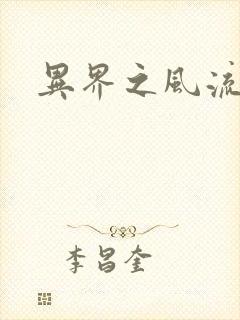 異界之風流
李昌奎